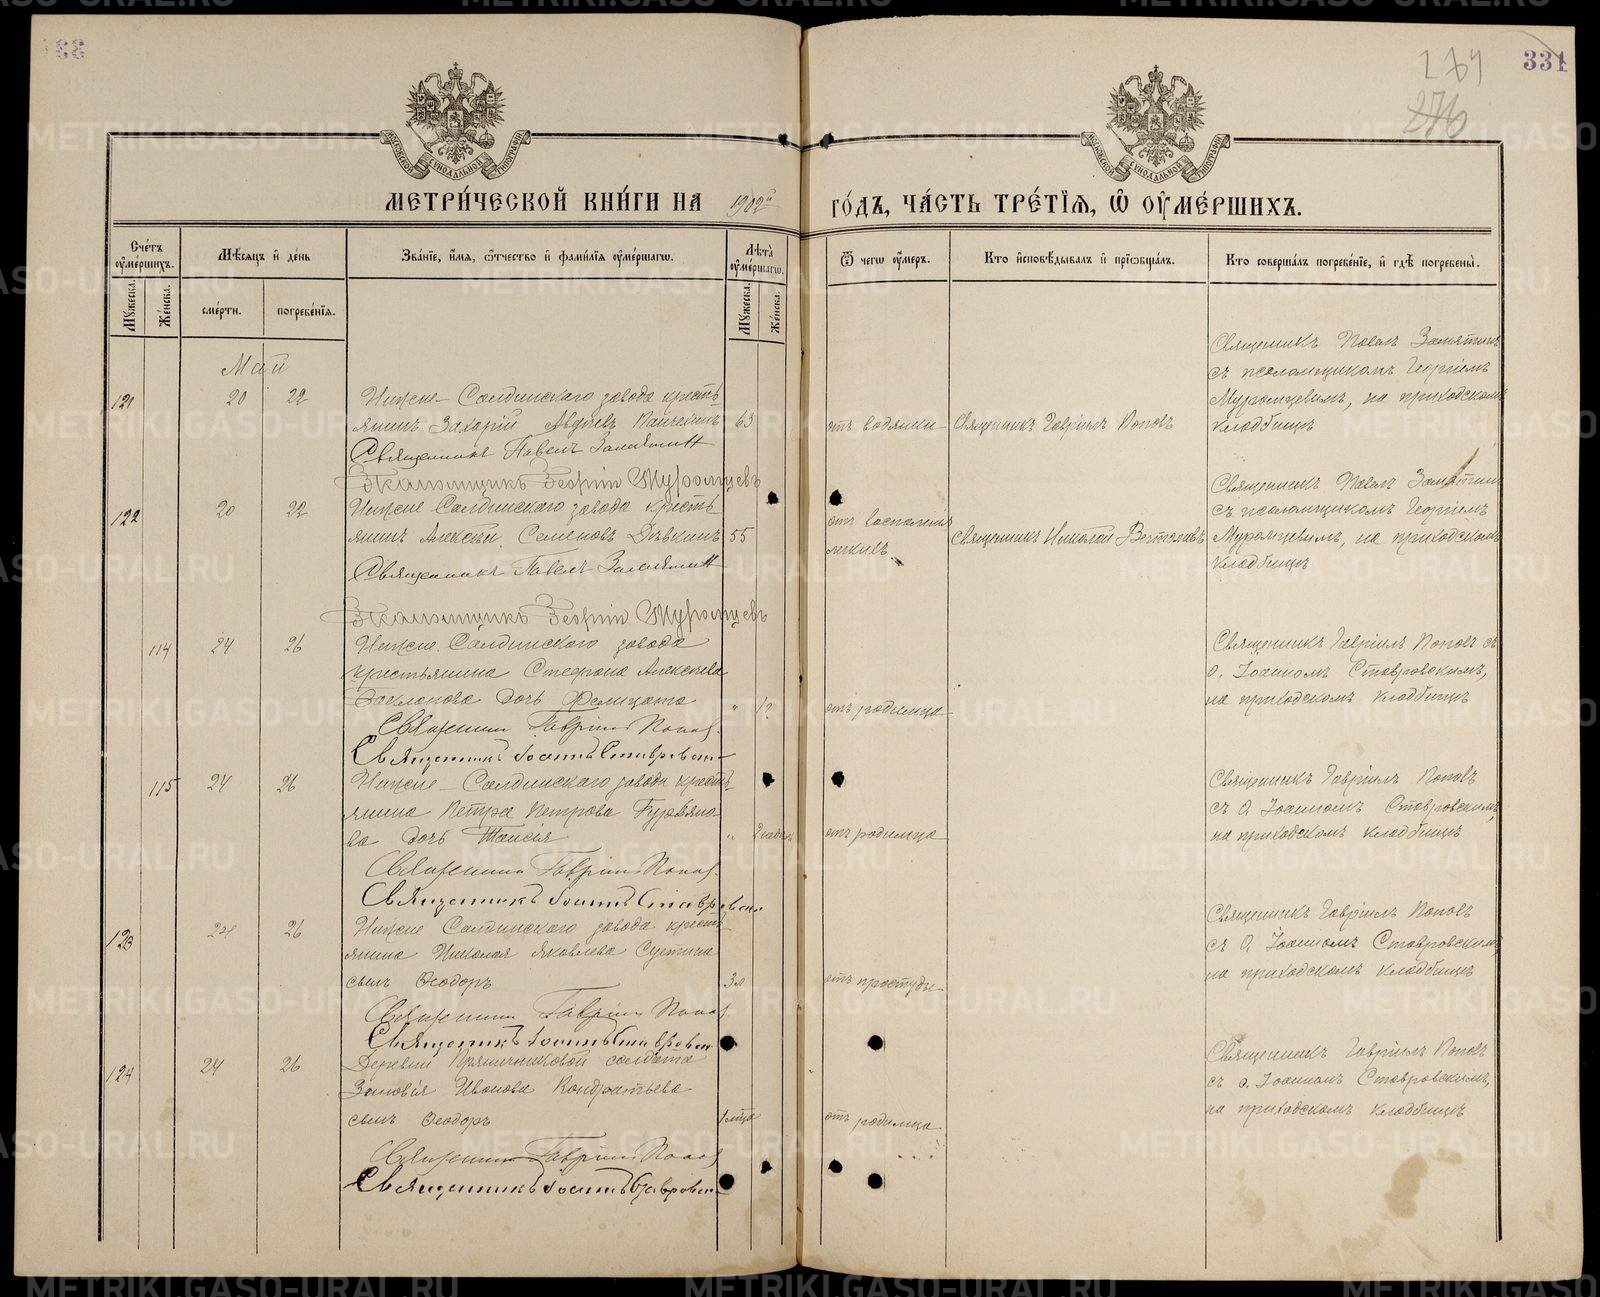 331
274
276
МОСКОВСКОЙ СѴНОДАЛЬНОЙ ТИПОГРАФІИ
МОСКОВСКОЙ СѴНОДАЛЬНОЙ ТИПОГРАФІИ
МЕТРИ́ЧЕСКОЙ КНИ́ГИ НА 1902й
ГО́ДЪ, ЧА́СТЬ ТРЕ́ТІѦ, Ѽ ОУ҆МЕ́РШИХЪ.
Сче́тъ оу҆ме́ршихъ.
Мѣ́сяцъ и҆ де́нь
Зва́нїе, и҆́мя, ѻ҆́тчество и҆ фами́лїя оу҆ме́ршагѡ.
Лѣ́та оу҆ме́ршагѡ.
Ѿ чегѡ̀ оу҆́меръ.
Кто̀ и҆сповѣ́дывалъ и҆ прїѡбща́лъ.
Кто̀ соверша́лъ погребе́нїе, и҆ гдѣ̀ погребены̀.
Мꙋ́жеска.
Же́нска.
сме́рти.
погребе́нїя.
Мꙋ́жеска.
Же́нска.
Май
121 20 22 Нижне-Салдинскаго завода кресть-
янинъ Захарій Авдѣевъ 63
Священникъ Павелъ Замятин
Псаломщикъ Георгій Муромцевъ
отъ водянки
Священникъ Гавріилъ Поповъ
Священникъ Павелъ Замятинъ
съ псаломщикомъ Георгіемъ
Муромцевымъ, на приходскомъ
кладбищѣ
122 20 22 Нижне Салдинскаго завода кресть-
янинъ Алексѣй Семеновъ Дѣвкинъ 55
Священникъ Павелъ Замятин
Псаломщикъ Георгій Муромцевъ
отъ воспаленія
легкихъ
Священникъ Николай
Священникъ Павелъ Замятинъ
съ псаломщикомъ Георгіемъ
Муромцевымъ, на приходскомъ
кладбищѣ
114 24 26 Нижне Салдинскаго завода
крестьянина Стефана Алексѣева
дочь Фелицата " 1/2
Священникъ Гавріилъ Попов
Священникъ Іоаннъ Ставровск
отъ родимца
Священникъ Гавріилъ Поповъ съ
о. Іоанномъ Ставровскимъ,
на приходскомъ кладбищѣ
115 24 26 Нижне-Салдинскаго завода кресть-
янина Петра Петрова Гурьяно-
ва дочь Таисія " 2 недѣли
Священникъ Гавріилъ Попов
Священникъ Іоаннъ Ставровск
отъ родимца
Священникъ Гавріилъ Поповъ
съ о. Іоанномъ Ставровскимъ,
на приходскомъ кладбищѣ
123 24 26 Нижне Салдинскаго завода кресть-
янина Николая Яковлева
сынъ Ѳеодоръ
Священникъ Гавріилъ Попов
Священникъ Іоаннъ Ставровск
отъ простуды
Священникъ Гавріилъ Поповъ
съ о. Іоанномъ Ставровскимъ,
на приходскомъ кладбищѣ
124 24 26 Деревни Пряничниковой солдата
Зиновія Иванова Кондратьева
сынъ Ѳеодоръ 1 м-ца
Священникъ Гавріилъ Попов
Священникъ Іоаннъ Ставровск
отъ родимца
Священникъ Гавріилъ Поповъ
съ о. Іоанномъ Ставровскимъ,
на приходскомъ кладбищѣ
METRIKI.GASO-URAL.RU